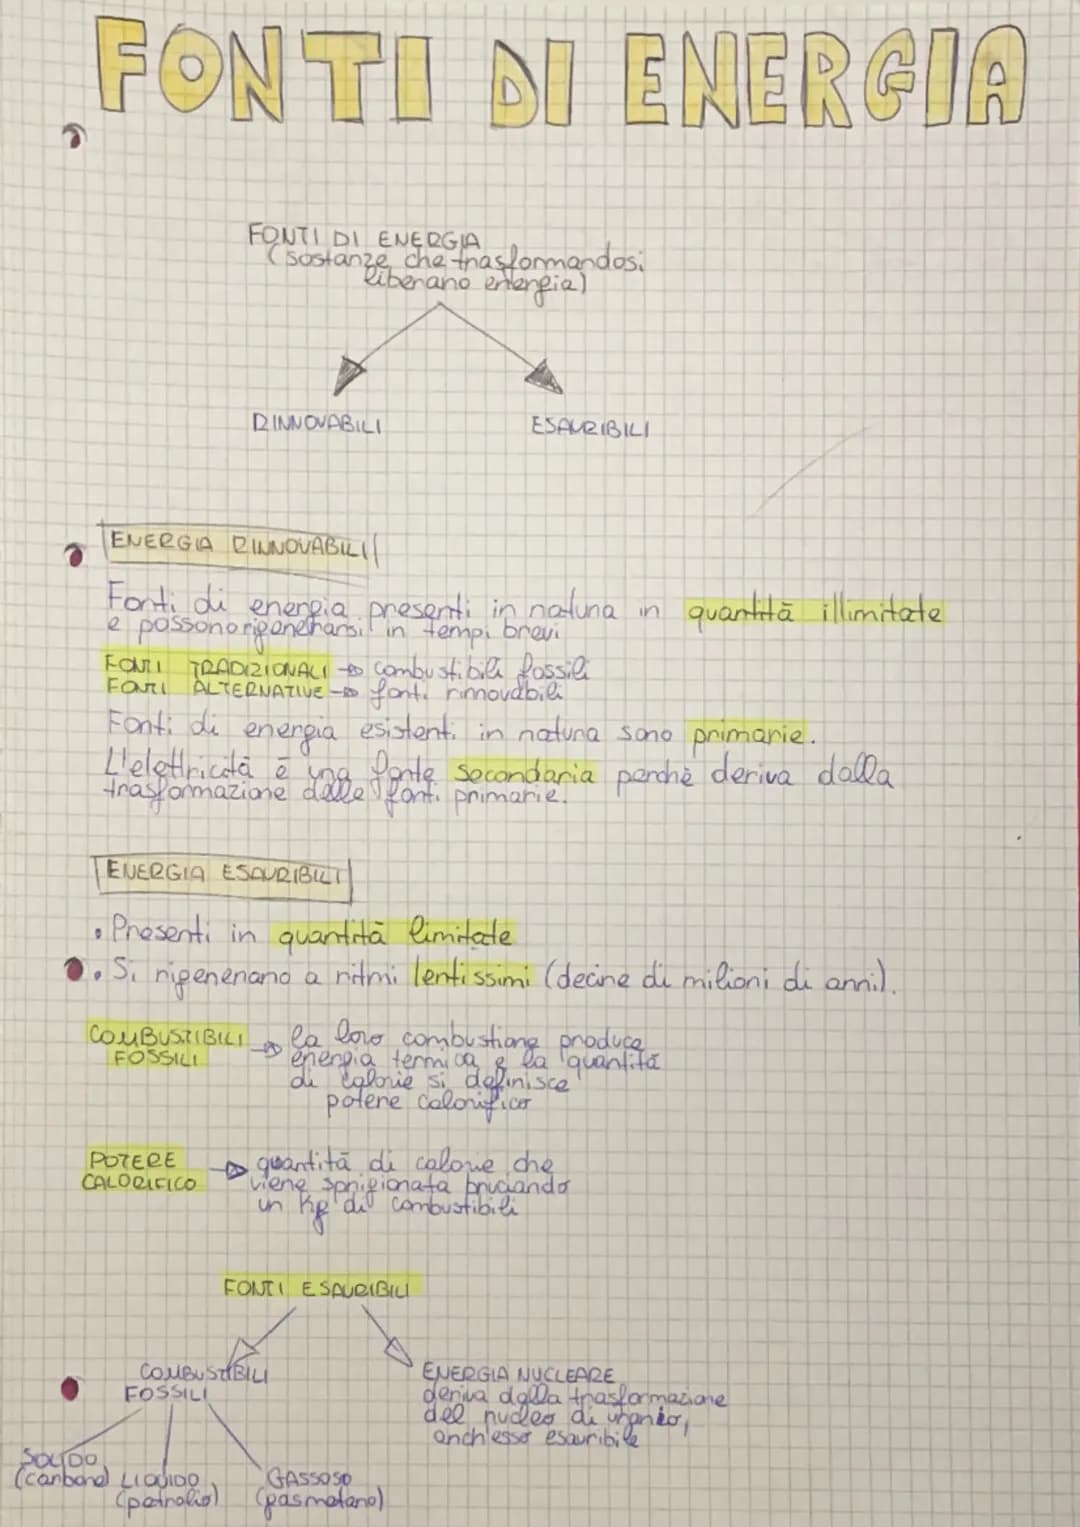 FONTI DI ENERGIA
FONTI DI ENERGIA
(sostanze che trasformandosi
liberano energia)
RINNOVABILI
ESAURIBILI
ENERGIA RINNOVABILI
Fonti di energia presenti in natura in quantità illimitate
e possono rigenerarsi in tempi brevi
FONTI TRADIZIONALI → combustibili fossili
FONTI ALTERNATIVE → fonti rinnovabili
Fonti di energia esistenti in natura sono primarie.
L'elettricità è una fonte secondaria perchè deriva dalla
trasformazione delle fonti primarie.
ENERGIA ESAURIBILI
• Presenti in quantità limitate
• Si rigenerano a ritmi lentissimi (decine di milioni di anni).
COMBUSTIBILI FOSSILI → la loro combustione produce
energia termica e la quantità
di calorie si definisce
potere calorifico
POTERE CALORIFICO → quantità di calore che
viene sprigionata bruciando
un kg di combustibili
FONTI ESAURIBILI
COMBUSTIBILI
FOSSILI
ENERGIA NUCLEARE
deriva dalla trasformazione
del nucleo di uranio,
anch'esso esauribile
SOLIDO
(carbone)
LIQUIDO
(petrolio)
GASSOSO
(gas metano)